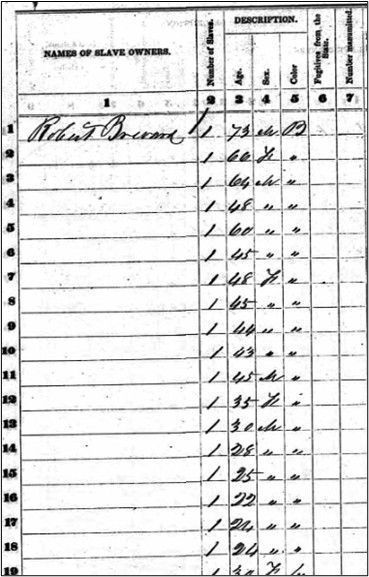 NAMES OF SLAVE OWNERS. Number of Slaves. DESCRIPTION. Fugitives from the State. Number manumitted.
Age. Sex. Color
1 2 3 4 5 6 7
1 Robert Brevard 1 73 M B
2 1 66 F "
3 1 64 M "
4 1 48 " "
5 1 60 " "
6 1 45 " "
7 1 48 F "
8 1 45 " "
9 1 44 " "
10 1 43 " "
11 1 45 M "
12 1 35 F "
13 1 30 M "
14 1 28 " "
15 1 25 " "
16 1 22 " "
17 1 24 " "
18 1 24 " "
19 1 30 F